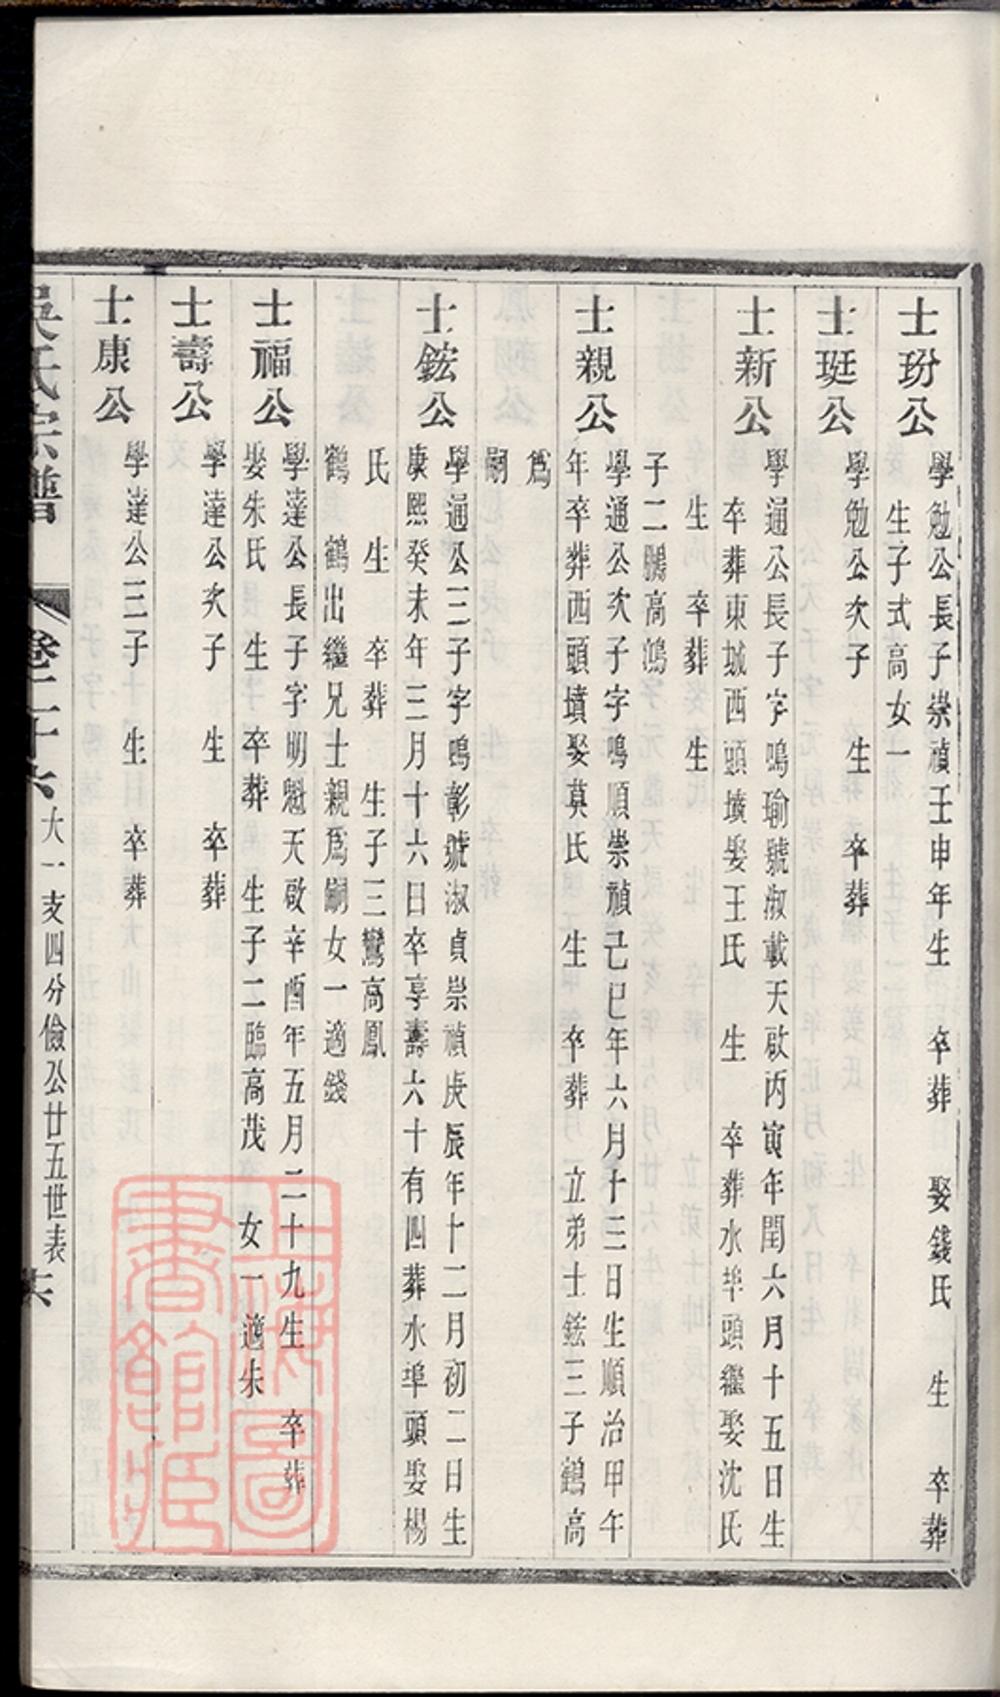 士玢公
學勉公長子崇禎壬申年生　卒葬　娶錢氏　生　卒葬
生子式高女一
士珽公
學勉公次子　生　卒葬
士新公
學通公長子字鳴瑜號淑載天啟丙寅年閏六月十五日生
卒葬東城西頭墳娶王氏　生　卒葬水埠頭繼娶沈氏
生　卒葬　生
子二鵬高鴻
士親公
學通公次子字鳴順崇禎己巳年六月十三日生順治甲午
年卒葬西頭墳娶莫氏　生　卒葬　立弟士鋐三子鶴高
爲
嗣
士鋐公
學通公三子字鳴彰號淑貞崇禎庚辰年十二月初二日生
康熙癸未年三月十六日卒享壽六十有四葬水埠頭娶楊
氏　生　卒葬　生子三鸞高鳳
鶴　鶴出繼兄士親爲嗣女一適錢
士福公
學達公長子字明魁天啟辛酉年五月二十九生　卒葬
娶朱氏　生　卒葬　生子二臨高茂　女一　適朱
士壽公
學達公次子　生　卒葬
士康公
學達公三子　生　卒葬
吳氏宗譜
卷二十六
大一支四分儉公廿五世表
上海圖
書館藏